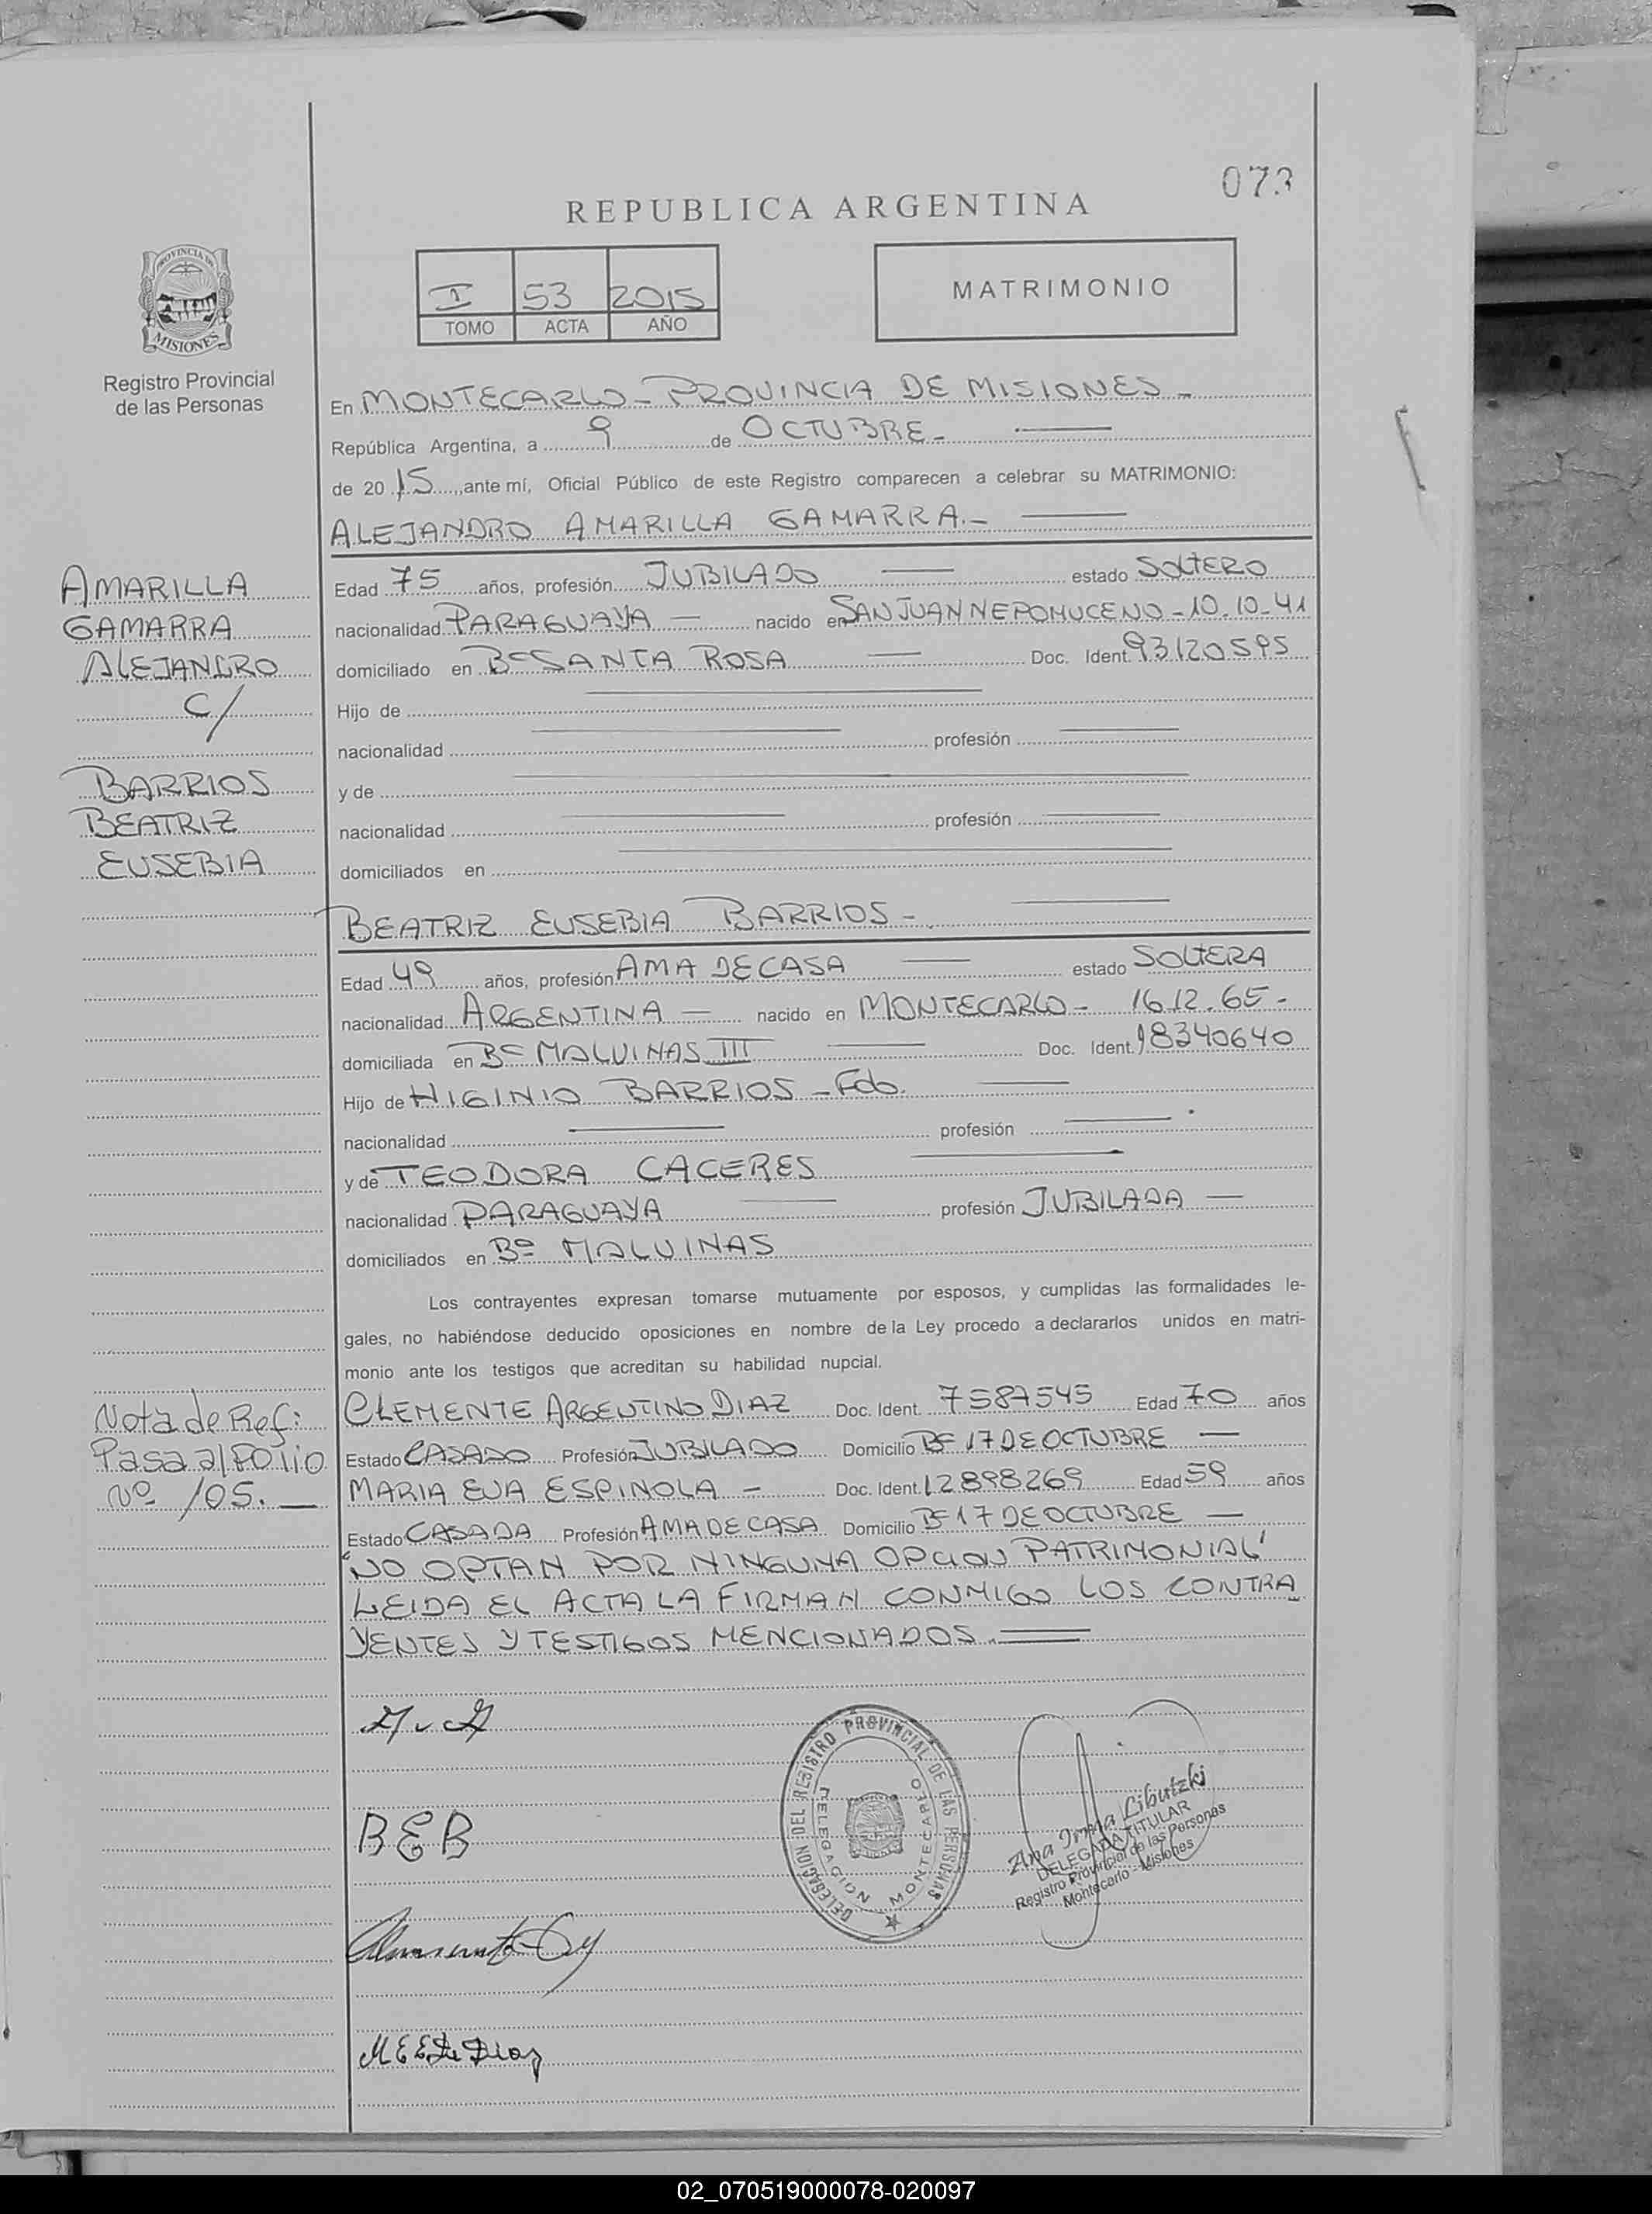 073
REPUBLICA ARGENTINA
PROVINCIA DE
MISIONES
Registro Provincial
de las Personas
I 53 2015
TOMO ACTA AÑO
MATRIMONIO
En MONTECARLO - PROVINCIA DE MISIONES -
República Argentina, a 9 de OCTUBRE -
de 20 15, ante mí, Oficial Público de este Registro comparecen a celebrar su MATRIMONIO:
ALEJANDRO AMARILLA GAMARRA.-
AMARILLA
GAMARRA
ALEJANDRO
C/
BARRIOS
BEATRIZ
EUSEBIA
Edad 75 años, profesión JUBILADO estado SOLTERO
nacionalidad PARAGUAYA nacido en SAN JUAN NEPOMUCENO - 10.10-41
domiciliado en Bº SANTA ROSA Doc. Ident. 93120595
Hijo de
nacionalidad profesión
y de
nacionalidad profesión
domiciliados en
BEATRIZ EUSEBIA BARRIOS -
Edad 49 años, profesión AMA DE CASA estado SOLTERA
nacionalidad ARGENTINA nacido en MONTECARLO - 16.12.65-
domiciliada en Bº MALVINAS III Doc. Ident. 18340640
Hijo de HIGINIO BARRIOS - Fdo.
nacionalidad profesión
y de TEODORA CACERES
nacionalidad PARAGUAYA profesión JUBILADA
domiciliados en Bº MALVINAS
Los contrayentes expresan tomarse mutuamente por esposos, y cumplidas las formalidades le-
gales, no habiéndose deducido oposiciones en nombre de la Ley procedo a declararlos unidos en matri-
monio ante los testigos que acreditan su habilidad nupcial.
Nota de Ref:
Pasa al Folio
Nº 105.
CLEMENTE ARGENTINO DIAZ Doc. Ident. 7587545 Edad 70 años
Estado CASADO Profesión JUBILADO Domicilio Bº 17 DE OCTUBRE
MARIA EVA ESPINOLA - Doc. Ident. 12898269 Edad 59 años
Estado CASADA Profesión AMA DE CASA Domicilio Bº 17 DE OCTUBRE
"NO OPTAN POR NINGUNA OPCION PATRIMONIAL"
LEIDA EL ACTA LA FIRMAN CONMIGO LOS CONTRA
YENTES Y TESTIGOS MENCIONADOS.
BEB
DELEGACION DEL REGISTRO PROVINCIAL DE LAS PERSONAS
DELEGACION MONTECARLO
Ana Irma Libutzki
DELEGADA TITULAR
Registro Provincial de las Personas
Montecarlo - Misiones
M E E De Diaz
02_070519000078-020097